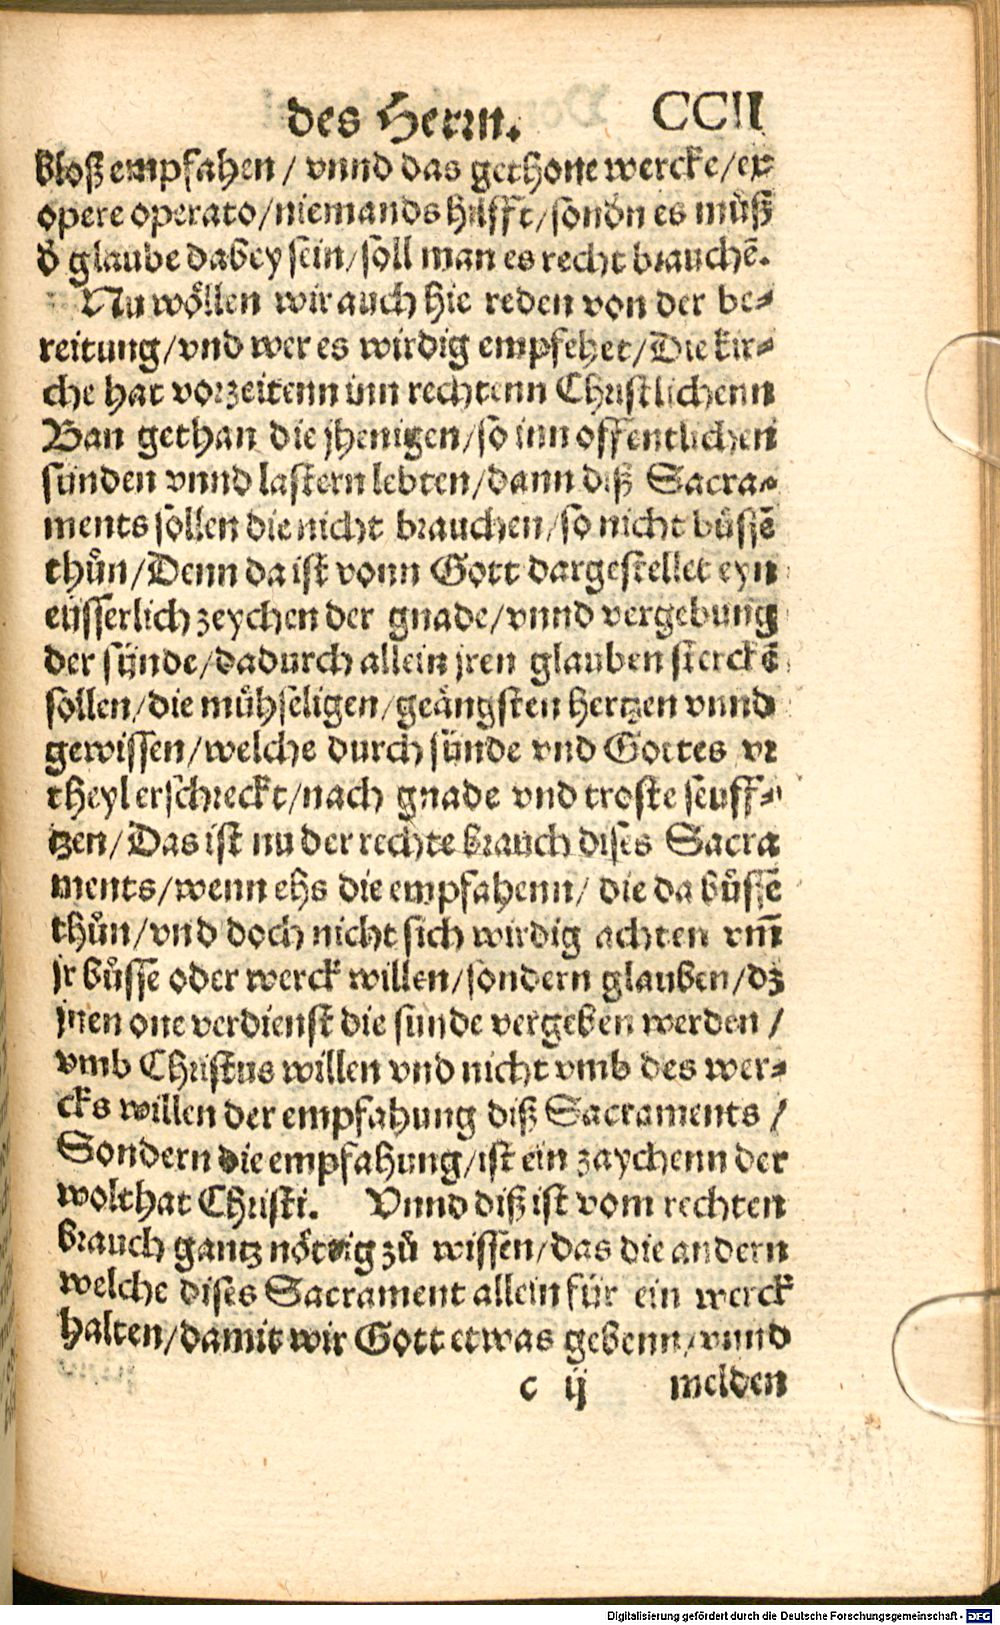 des Herrn. CCII
bloß empfahen / vnnd das gethone wercke / ex
opere operato / niemands hilfft / sondn es můß
d̕ glaube dabey sein / soll man es recht brauchē.
Nu wöllen wir auch hie reden von der be-
reitung / vnd wer es wirdig empfehet / Die kir-
che hat vorzeitenn inn rechtenn Christlichenn
Ban gethan die jhenigen / so inn offentlichen
sünden vnnd lastern lebten / dann diß Sacra-
ments sollen die nicht brauchen / so nicht bůssē
thůn / Denn da ist vonn Gott dargestellet eyn
eüsserlich zeychen der gnade / vnnd vergebung
der sünde / dadurch allein jren glauben sterckē
sollen / die mühseligen / geängsten hertzen vnnd
gewissen / welche durch sünde vnd Gottes vr
theyl erschreckt / nach gnade vnd troste seuff-
tzen / Das ist nu der rechte brauch dises Sacra
ments / wenn ehs die empfahenn / die da bůssē
thůn / vnd doch nicht sich wirdig achten vm̄
jr bůsse oder werck willen / sondern glauben / dz
jnen one verdienst die sünde vergeben werden /
vmb Christus willen vnd nicht vmb des wer-
cks willen der empfahung diß Sacraments /
Sondern die empfahung / ist ein zaychenn der
wolthat Christi. Vnnd diß ist vom rechten
brauch gantz nöttig zů wissen / das die andern
welche dises Sacrament allein für ein werck
halten / damit wir Gott etwas gebenn / vnnd
c ij melden
Digitalisierung gefördert durch die Deutsche Forschungsgemeinschaft - DFG